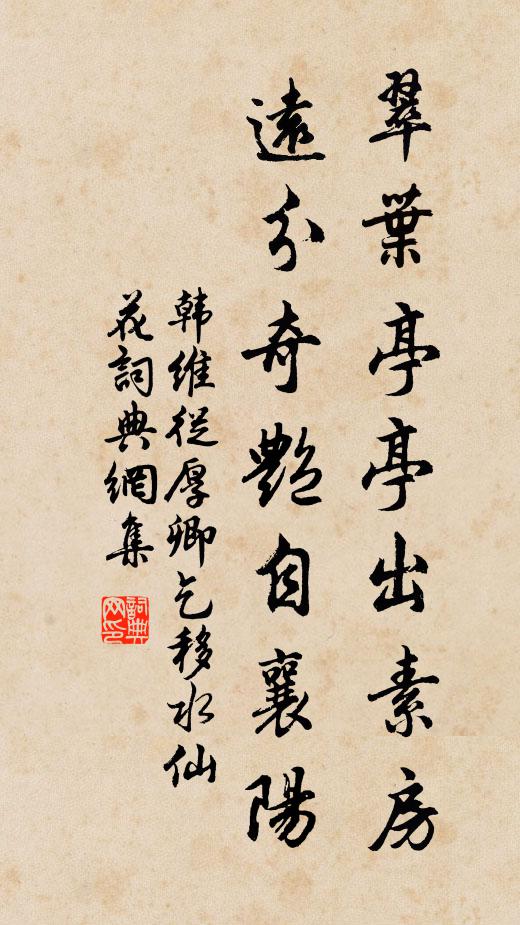 翠葉亭亭出素房
遠分奇艶自襄陽
韩維從厚卿乞移水仙
花詞典網集
詞典网印